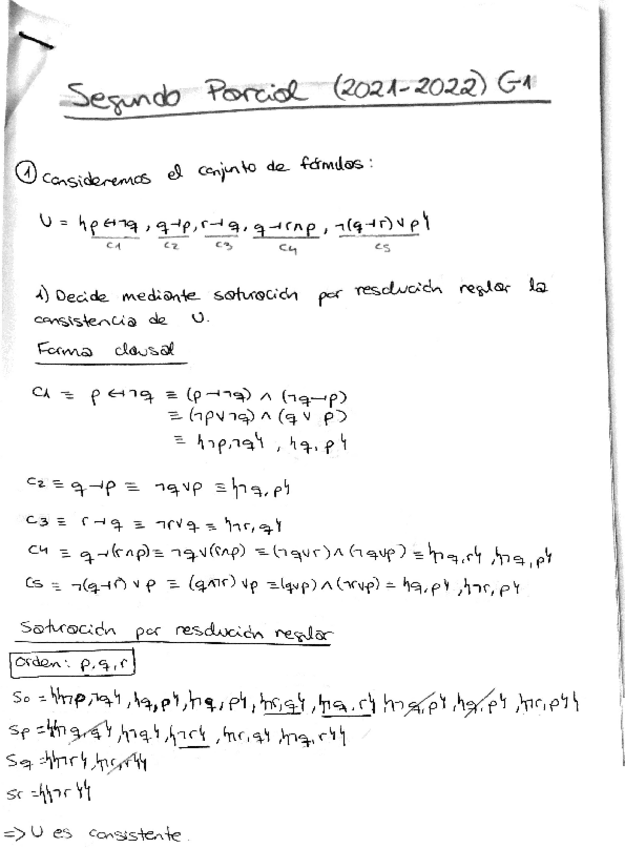 Segundo Parcial (2021-2022) G1
① Consideremos el conjunto de fórmulas:
U = {p↔¬q, q→p, r→q, q→r∧p, ¬(q→r)∨p}
C1 C2 C3 C4 C5
1) Decide mediante saturación por resolución regular la
consistencia de U.
Forma clausal
C1 ≡ p↔¬q ≡ (p→¬q) ∧ (¬q→p)
≡ (¬p∨¬q) ∧ (q∨p)
≡ {¬p,¬q}, {q,p}
C2 ≡ q→p ≡ ¬q∨p ≡ {¬q,p}
C3 ≡ r→q ≡ ¬r∨q ≡ {¬r,q}
C4 ≡ q→(r∧p) ≡ ¬q∨(r∧p) ≡ (¬q∨r)∧(¬q∨p) ≡ {¬q,r}, {¬q,p}
C5 ≡ ¬(q→r)∨p ≡ (q∧¬r)∨p ≡ (q∨p)∧(¬r∨p) = {q,p}, {¬r,p}
Saturación por resolución regular
Orden: p,q,r
S0 = {{¬p,¬q}, {q,p}, {¬q,p}, {¬r,q}, {¬q,r} {¬q,p}, {q,p}, {¬r,p}}
Sp = {{¬q,q}, {¬q}, {¬r}, {¬r,q}, {¬q,r}}
Sq = {{¬r}, {¬r,r}}
Sr = {{¬r}}
=> U es consistente.